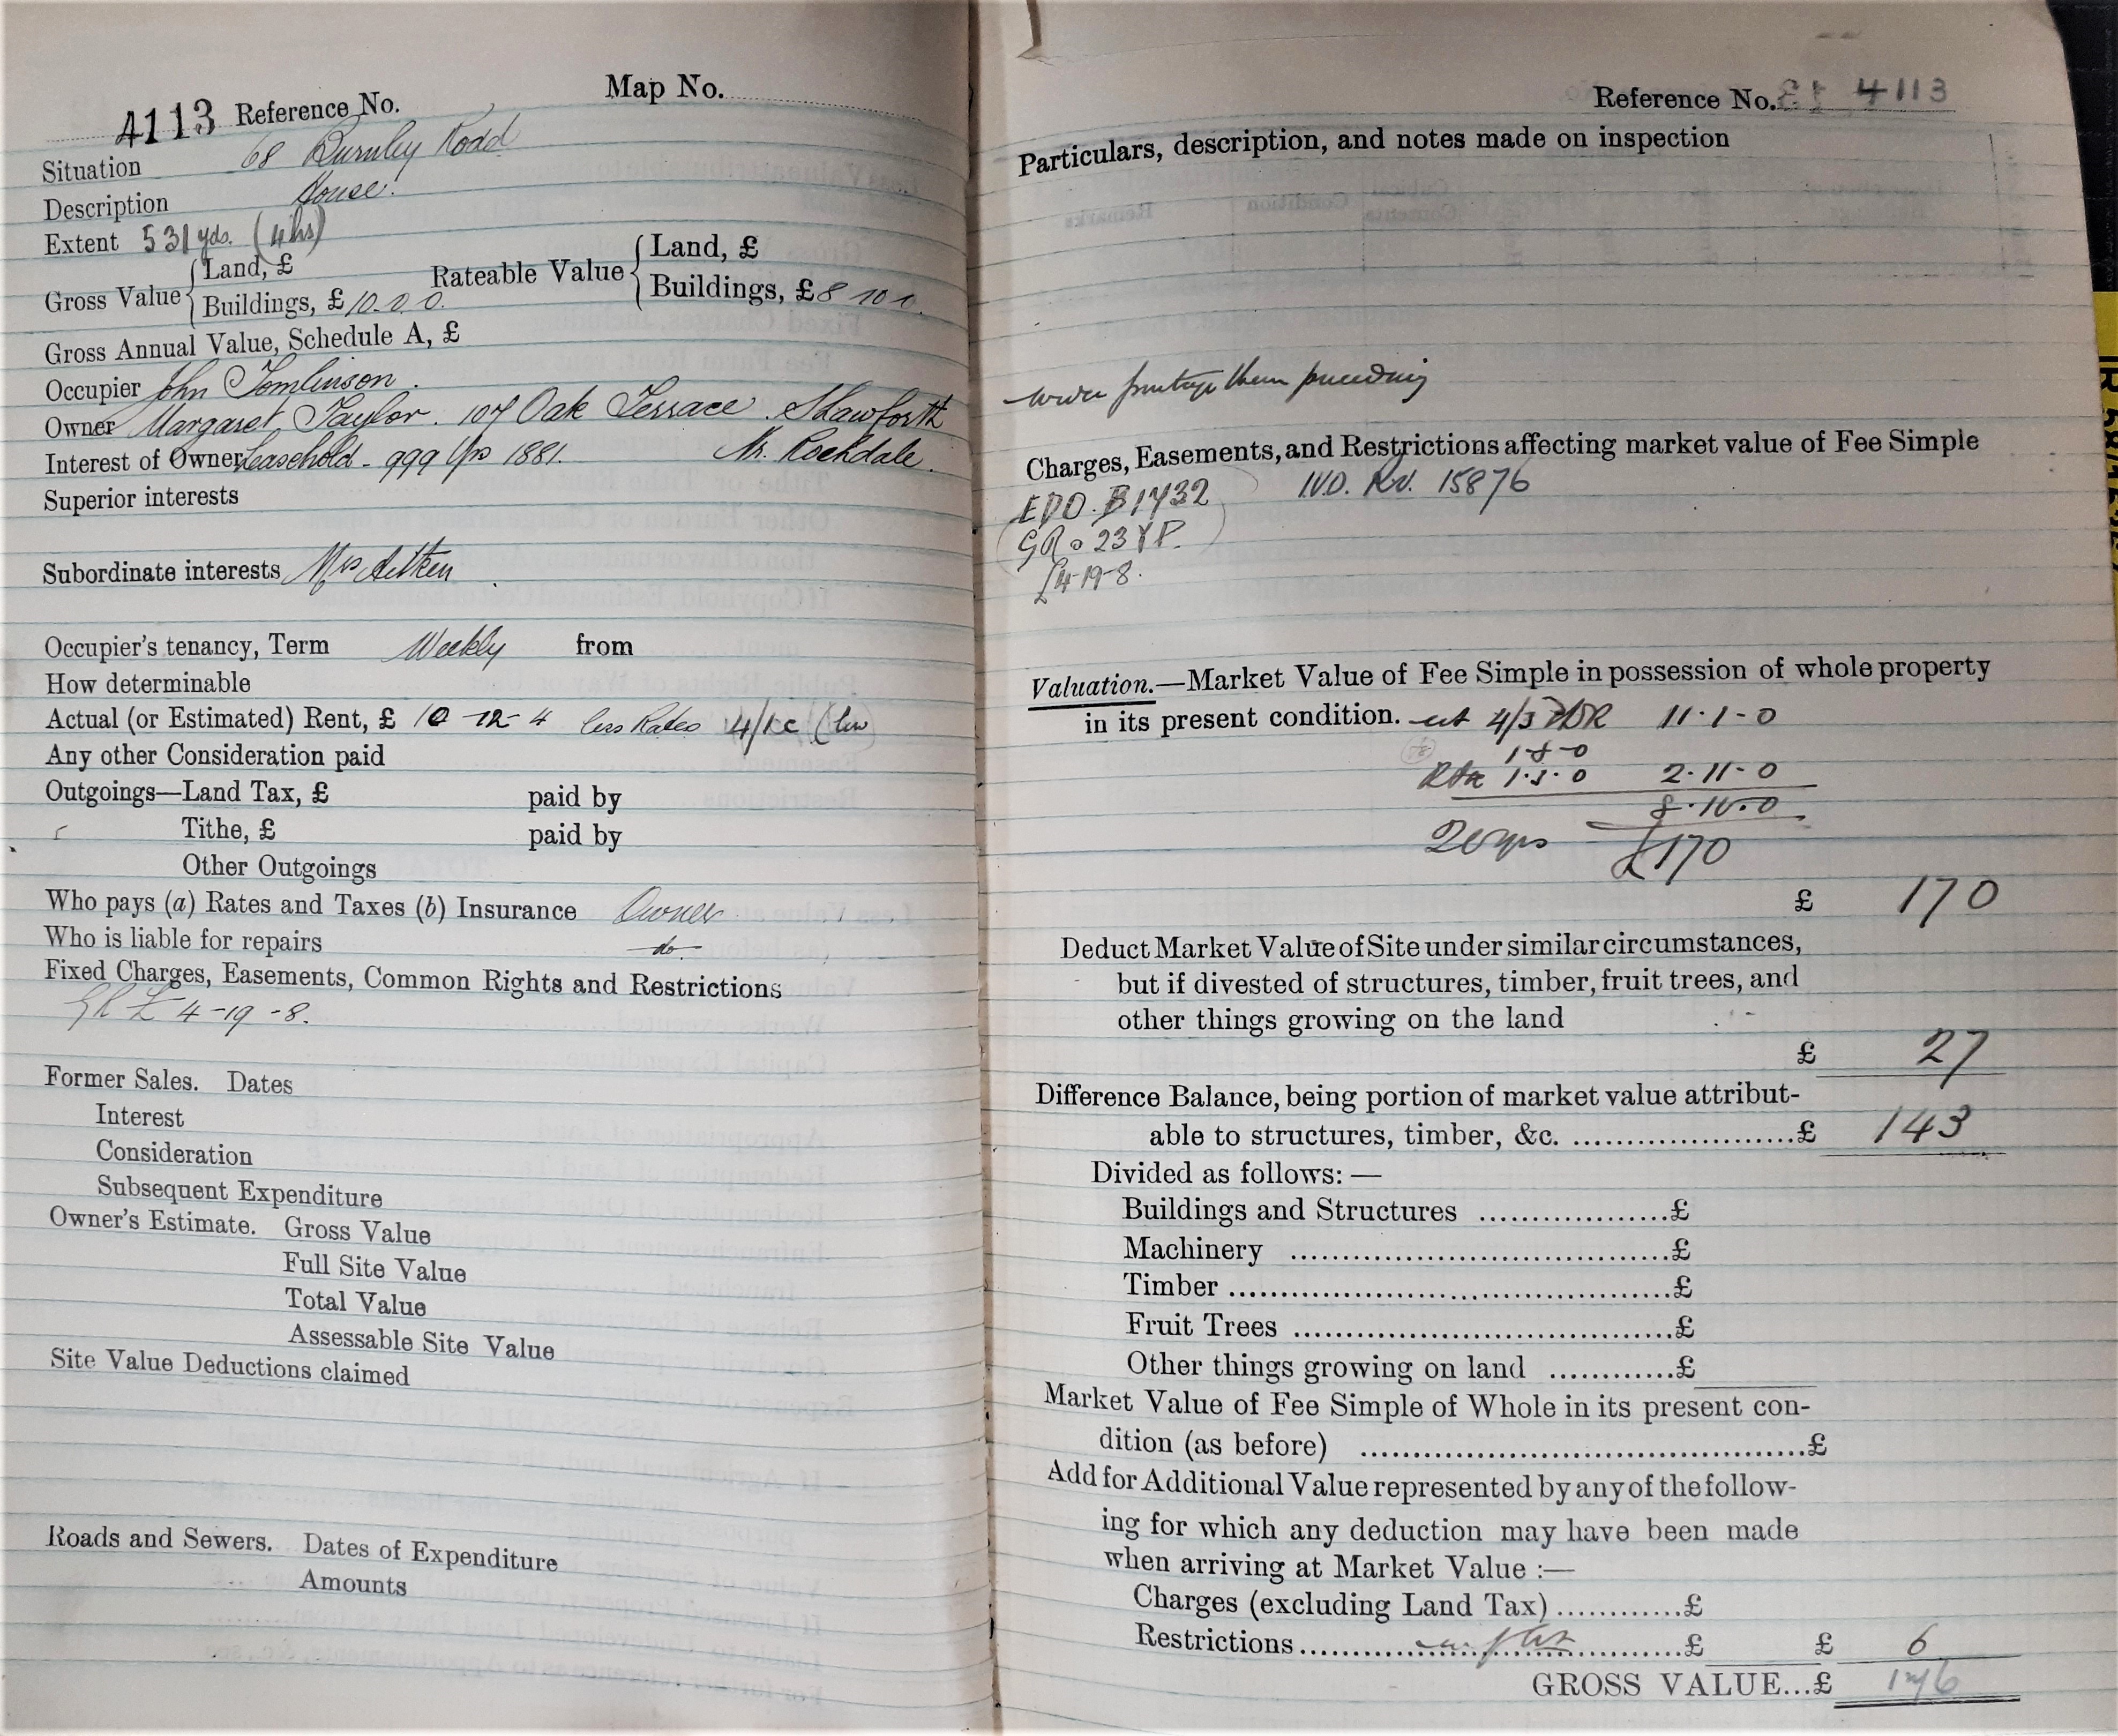 4113 Reference No. Map No.
Situation 68 Burnley Road
Description House.
Extent 531 yds. (4 hs)
Gross Value { Land, £
Buildings, £ 10. 0. 0.
Rateable Value { Land, £
Buildings, £ 8 10
Gross Annual Value, Schedule A, £
Occupier John Tomlinson.
Owner Margaret Taylor. 107 Oak Terrace. Shawforth
Interest of Owner Leasehold - 999 Yrs 1881. Nr. Rochdale.
Superior interests
Subordinate interests Mrs Aitken
Occupier's tenancy, Term Weekly from
How determinable
Actual (or Estimated) Rent, £ 10 - 12 - 4 less Rates
Any other Consideration paid
Outgoings—Land Tax, £ paid by
Tithe, £ paid by
Other Outgoings
Who pays (a) Rates and Taxes (b) Insurance Owner
Who is liable for repairs do.
Fixed Charges, Easements, Common Rights and Restrictions
GR £ 4 - 19 - 8.
Former Sales. Dates
Interest
Consideration
Subsequent Expenditure
Owner's Estimate. Gross Value
Full Site Value
Total Value
Assessable Site Value
Site Value Deductions claimed
Roads and Sewers. Dates of Expenditure
Amounts
Reference No. 4113
Particulars, description, and notes made on inspection
frontage than preceding
Charges, Easements, and Restrictions affecting market value of Fee Simple
15876
GR @ 23 YP.
£4-19-8.
Valuation.—Market Value of Fee Simple in possession of whole property
in its present condition. 4/3 11 . 1 - 0
2 . 11 - 0
8 . 10 . 0
20 yrs £170
£ 170
Deduct Market Value of Site under similar circumstances,
but if divested of structures, timber, fruit trees, and
other things growing on the land
£ 27
Difference Balance, being portion of market value attribut-
able to structures, timber, &c. ......................£ 143
Divided as follows: —
Buildings and Structures ...................£
Machinery ....................................£
Timber .............................................£
Fruit Trees ....................................£
Other things growing on land ............£
Market Value of Fee Simple of Whole in its present con-
dition (as before) .........................................£
Add for Additional Value represented by any of the follow-
ing for which any deduction may have been made
when arriving at Market Value :—
Charges (excluding Land Tax) ............£
Restrictions.......................................£ £ 6
GROSS VALUE...£ 176